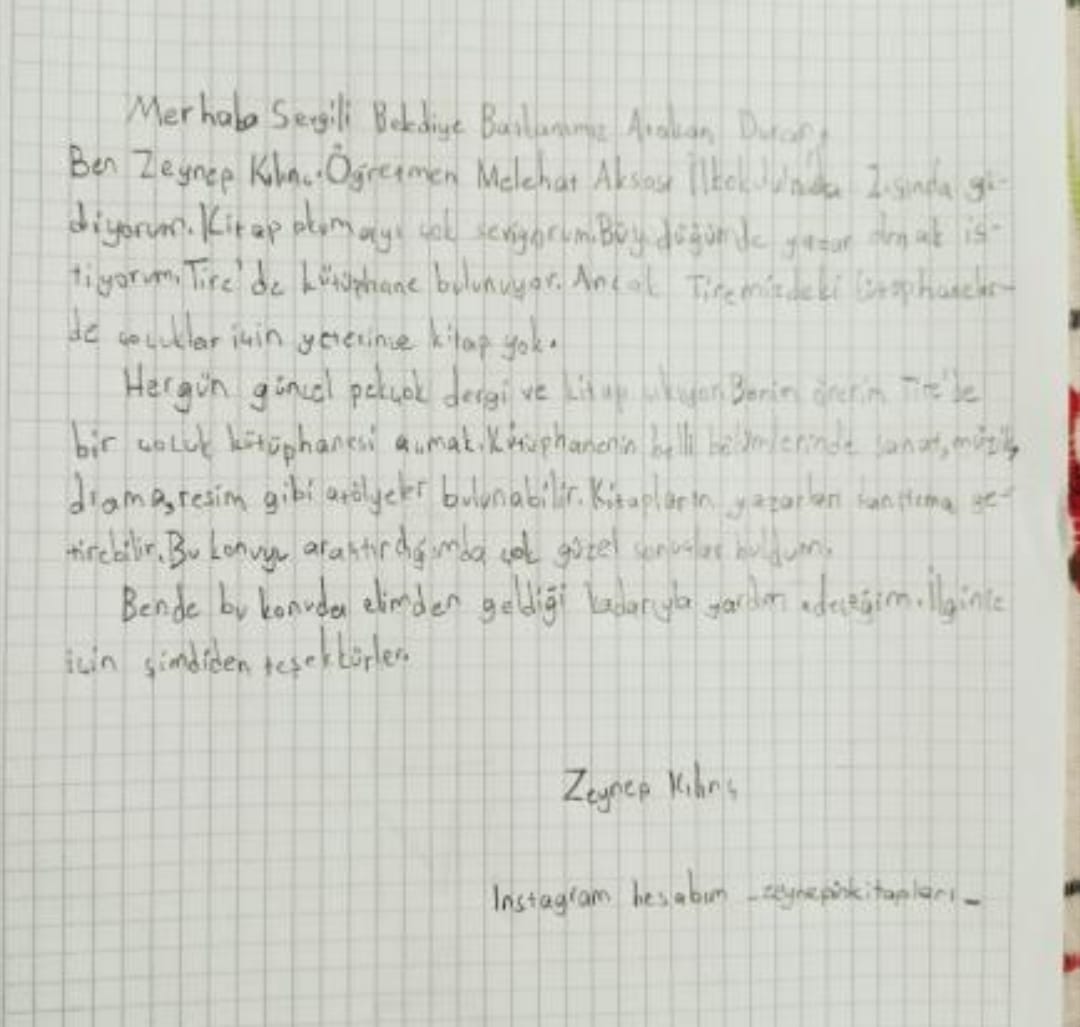 Merhaba Sevgili Belediye Başkanımız Atakan Duran,
Ben Zeynep Kılınç. Öğretmen Melehat Aksoy İlkokulu'nda 2.sınıfa gi-
diyorum. Kitap okumayı çok seviyorum. Büyüdüğümde yazar olmak is-
tiyorum. Tire'de kütüphane bulunuyor. Ancak Tiremizdeki kütüphaneler-
de çocuklar için yeterince kitap yok.
Hergün güncel pekçok dergi ve kitap çıkıyor. Benim önerim Tire'de
bir çocuk kütüphanesi açmak. Kütüphanenin belli bölümlerinde sanat, müzik,
drama, resim gibi atölyeler bulunabilir. Kitapların yazarları tanıtıma ge-
tirebilir. Bu konuyu araştırdığımda çok güzel sonuçlar buldum.
Bende bu konuda elimden geldiği kadarıyla yardım edeceğim. İlginiz
için şimdiden teşekkürler.
Zeynep Kılınç
Instagram hesabım _zeynepinkitapları_